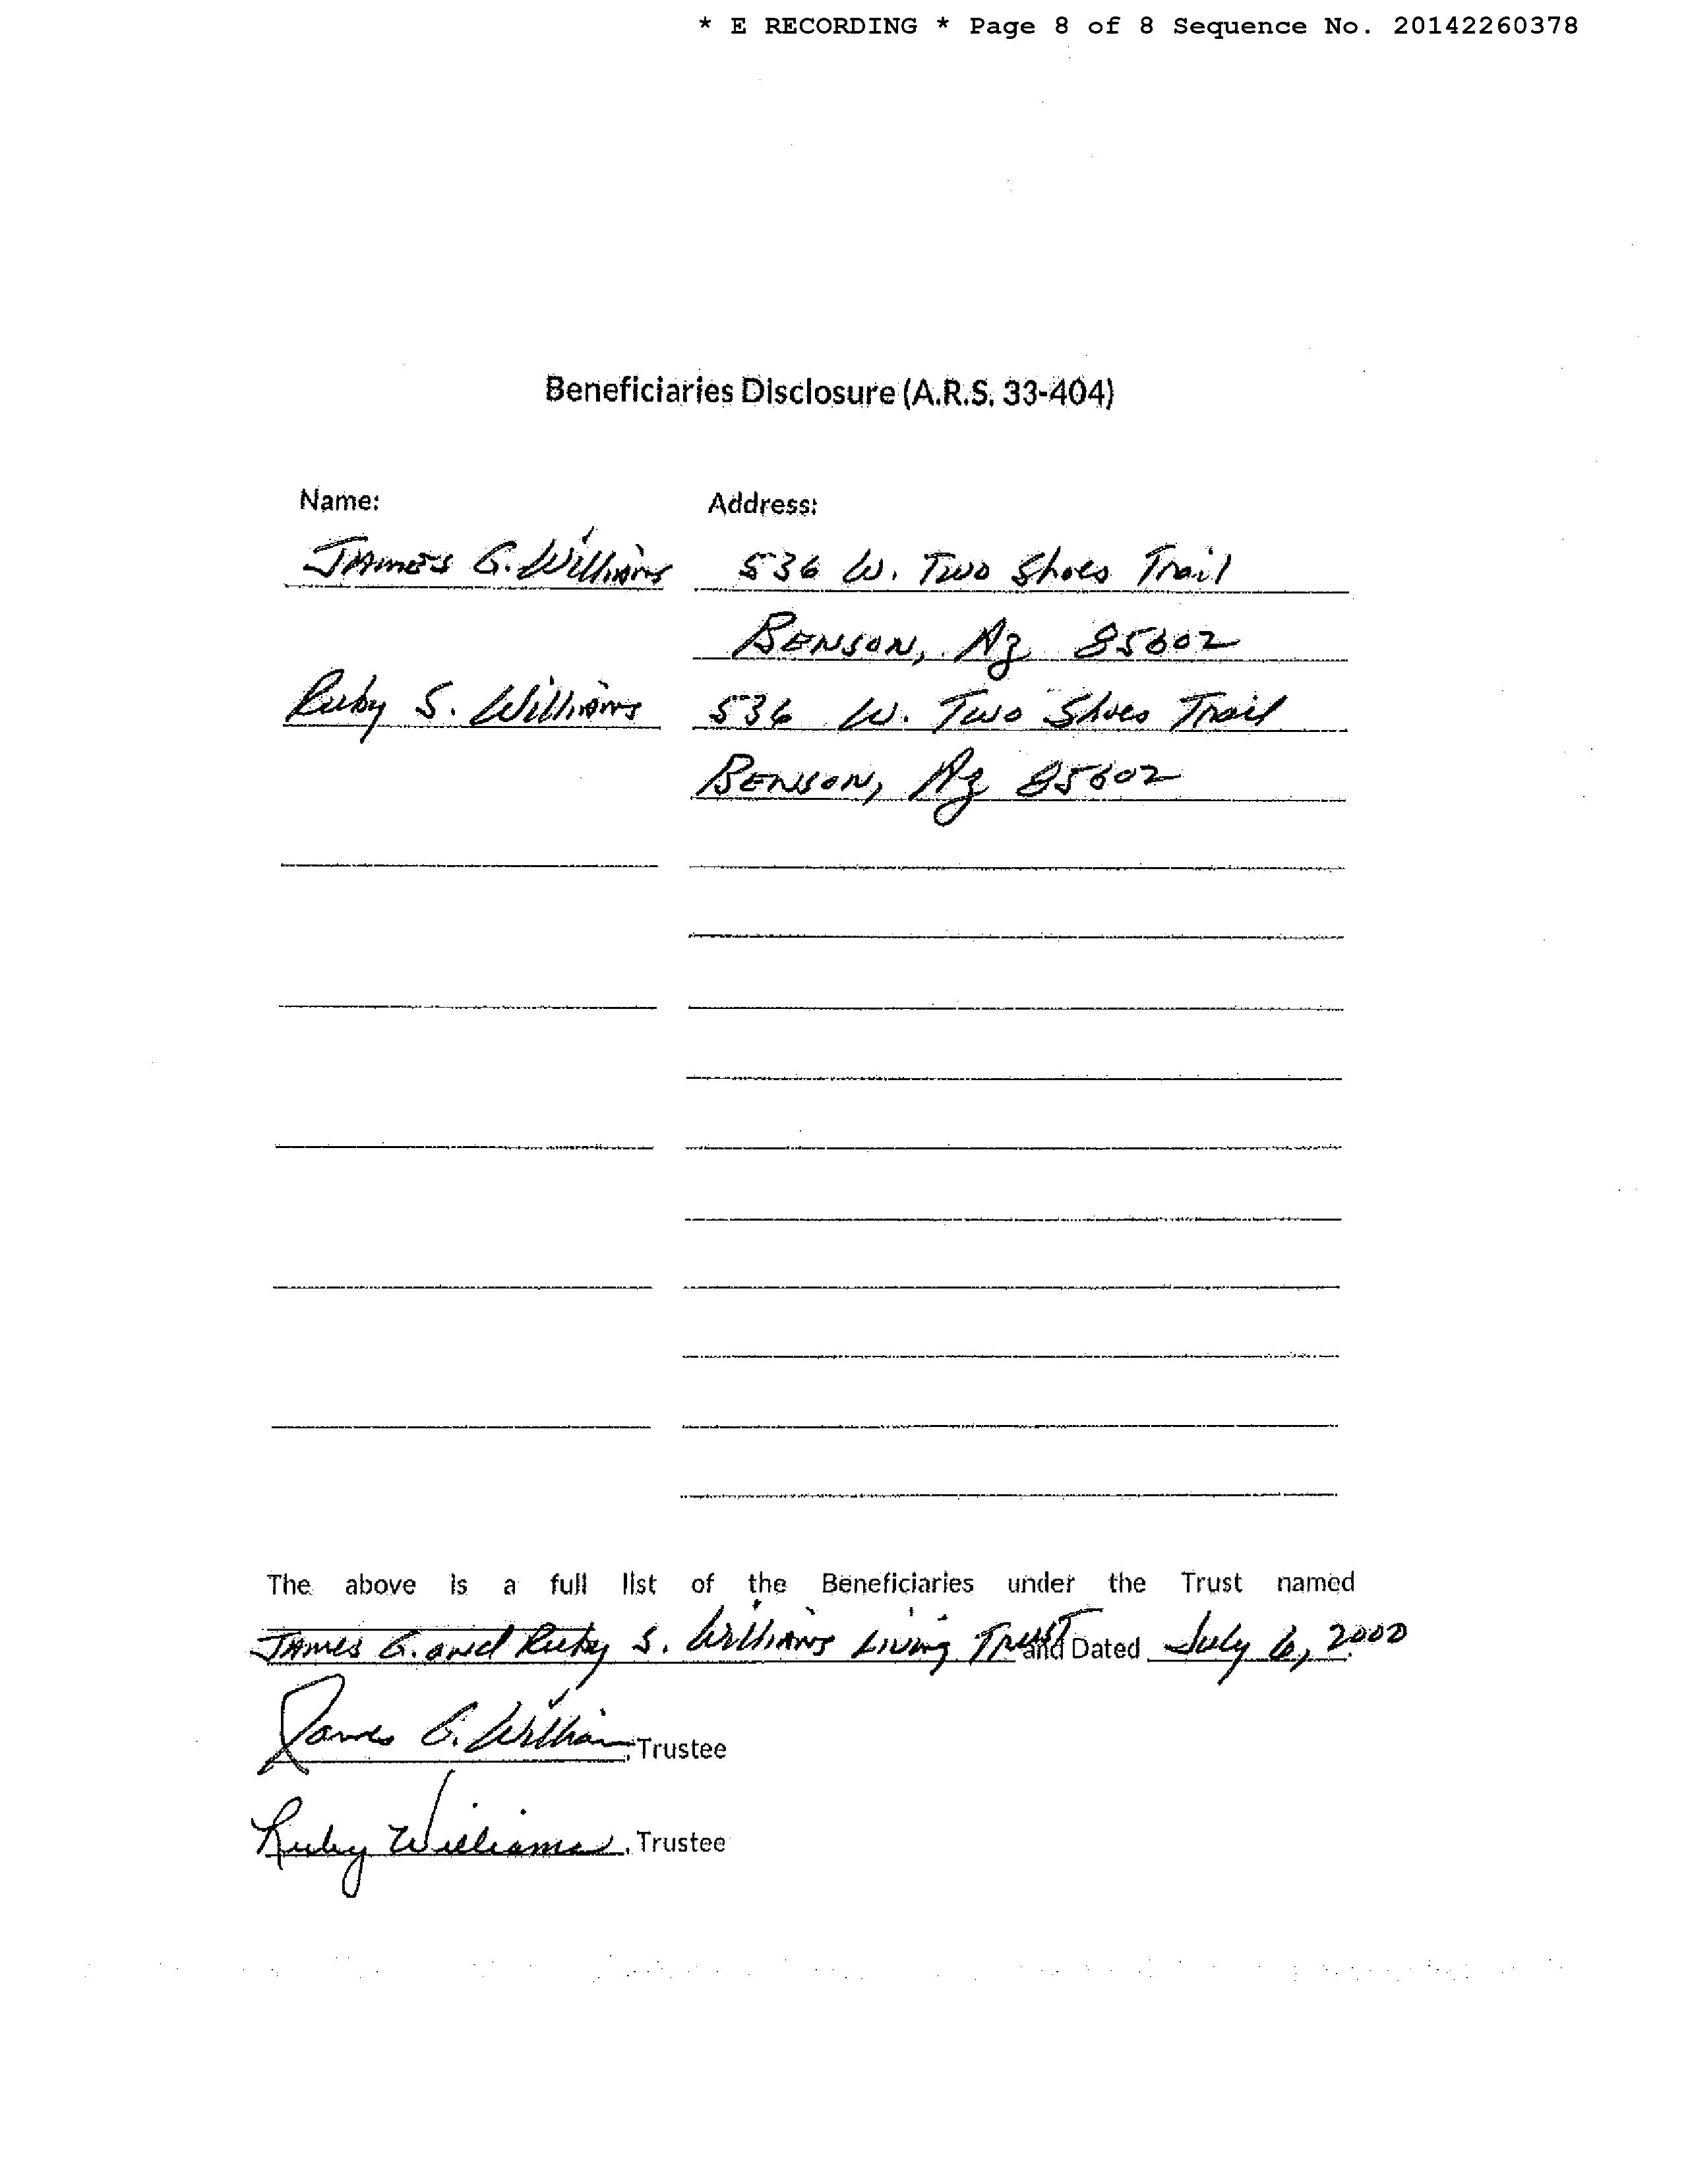 * E RECORDING * Page 8 of 8 Sequence No. 20142260378
Beneficiaries Disclosure (A.R.S. 33-404)
Name: Address:
James G. Williams 536 W. Two Shoes Trail
Benson, Az 85602
Ruby S. Williams 536 W. Two Shoes Trail
Benson, Az 85602
The above is a full list of the Beneficiaries under the Trust named
James G. and Ruby S. Williams Living Trust and Dated July 6, 2000
James G. Williams, Trustee
Ruby Williams, Trustee